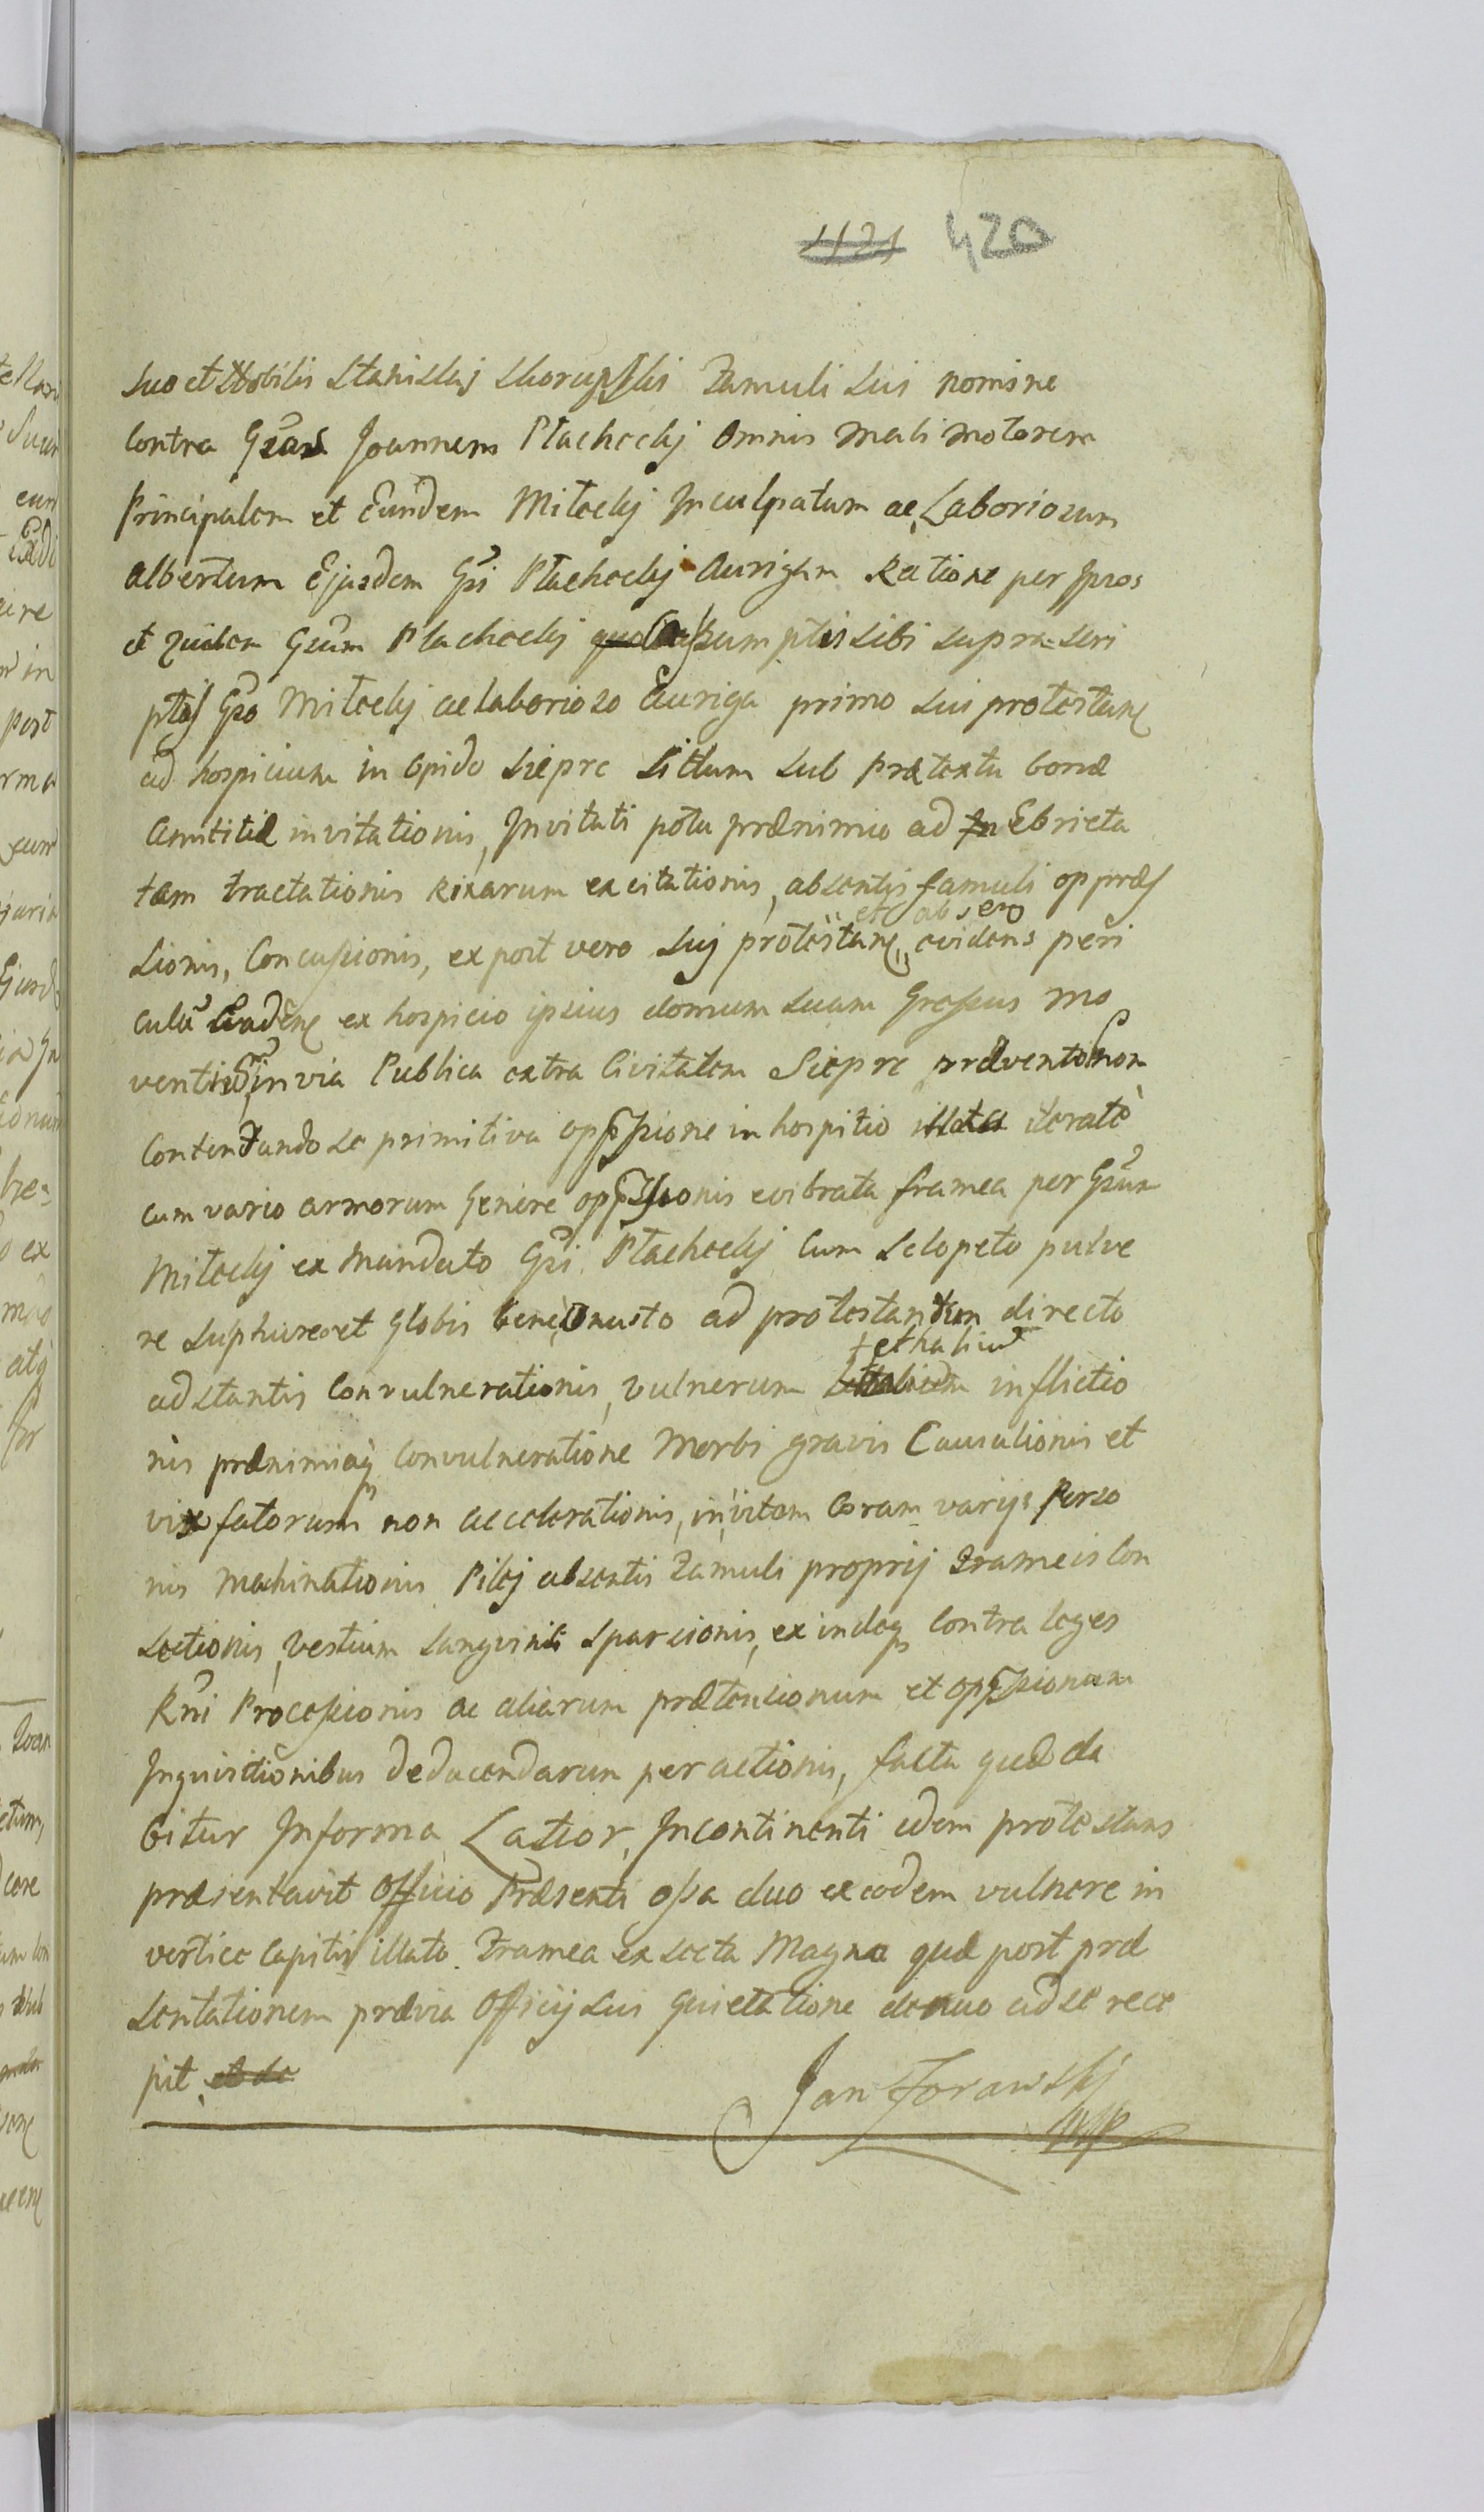 1121 420
suo et Nobilis Stanislaj Skorupski Famuli sui nomine
Contra Gsum Joannem Płachecky Omnis mali motorem
Principalem et Eundem Miłocky Inculpatum ac Laboriosum
Albertum Ejusdem Gsi Płachecky Aurigam Ratione per Ipsos
et quidem Gsum Płachecky assumptis sibi supra scri
ptis Gso Miłocky ac laborioso Auriga primo sui protestans
ad hospicium in Opido Sieprc Sittum sub prætextu bonæ
Amititiæ invitationis, Invitati potu prænimio ad Ebrieta
tem tractationis Rixarum excitationis, absentis famuli oppræs
sionis, Concussionis, expost vero suj protestans, evidens peri
et ab sero
culum Evadens ex hospicio ipsius domum suam Gressus mo
ventis in via Publica extra Civitatem Sieprc prævento non
Contentando se primitiva oppssione in hospitio illata iterate
cum vario armorum Genere oppssionis evibrata framea per Gsum
Miłocky ex Mandato Gsi Płachecky Cum Sclopeto pulve
re sulphureo et Globis bene Onusto ad protestantem directo
adstantis Convulnerationis, vulnerum inflictio
lethalium
nis prænimiaq Convulneratione Morbi gravis Causationis et
vix fatorum non accelerationis, in vitam Coram varijs Perso
nis machinationis Pilej absentis Famuli proprij Frameis Con
sectionis, Vestium sangvinis sparsionis, ex indeq Contra leges
Rni Processionis ac aliarum prætensionum et oppssionum
Inquisitionibus deducendarum per actionis, facta quæ da
bitur In forma Latior, Incontinenti idem protestans
præsentavit Officio Præsenti ossa duo ex eodem vulnere in
vertice Capitis illato Framea exsecta Magna quæ post præ
sentationem prævia Officij sui quietatione denuo ad se rece
pit et de
Jan Zorawskj
mp